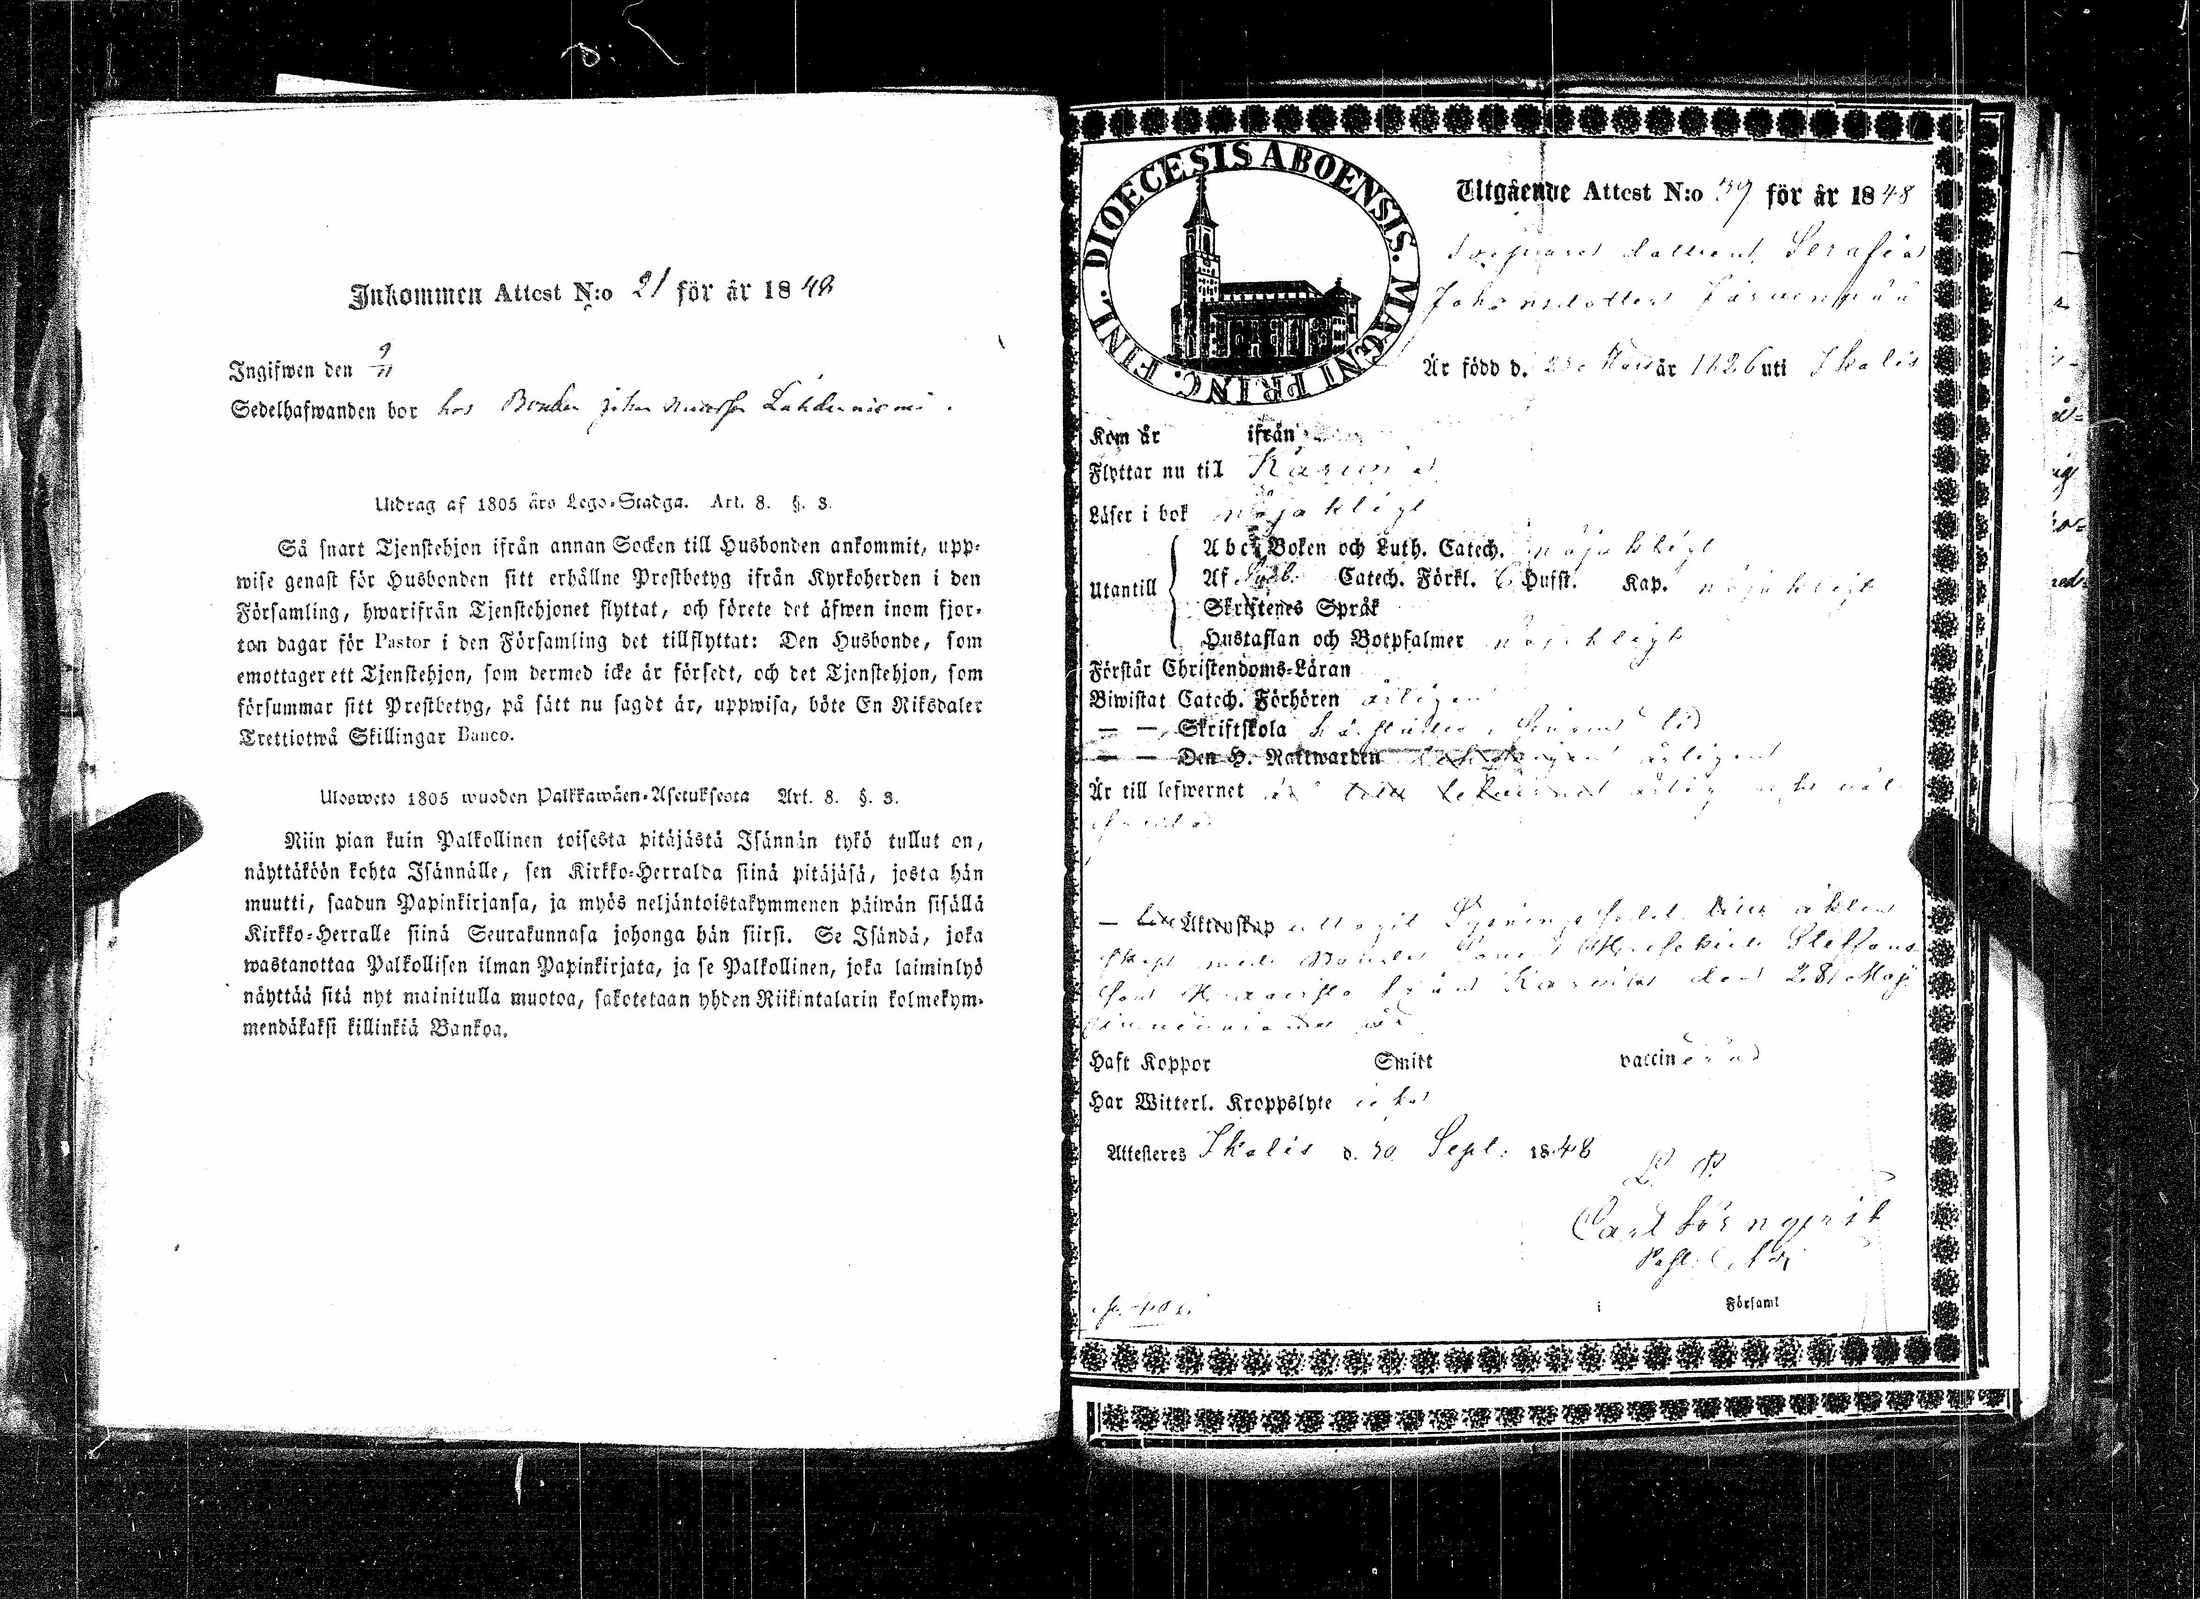 Inkommen Attest N:o 21 för år 1848
Ingifwen den 9/11
Sedelhafwanden bor hos Bonden Johan Lähdeniemi.
Utdrag af 1805 års Lego-Stadga. Art. 8. §. 3.
Så snart Tjenstehjon ifrån annan Socken till Husbonden ankommit, upp-
wise genast för Husbonden sitt erhållne Prestbetyg ifrån Kyrkoherden i den
Församling, hwarifrån Tjenstehjonet flyttat, och förete det äfwen inom fjor-
ton dagar för Pastor i den Församling det tillflyttat: Den Husbonde, som
emottager ett Tjenstehjon, som dermed icke är försedt, och det Tjenstehjon, som
försummar sitt Prestbetyg, på sätt nu sagdt är, uppwisa, böte En Riksdaler
Trettiotwå Skillingar Banco.
Ulosweto 1805 wuoden Palkkawäen-Asetuksesta Art. 8. §. 3.
Niin pian kuin Palkollinen toisesta pitäjästä Isännän tykö tullut on,
näyttäköön kohta Isännälle, sen Kirkko-Herralda siinä pitäjäsä, josta hän
muutti, saadun Papinkirjansa, ja myös neljäntoistakymmenen päiwän sisällä
Kirkko-Herralle siinä Seurakunnasa johonga hän siirsi. Se Isändä, joka
wastanottaa Palkollisen ilman Papinkirjata, ja se Palkollinen, joka laiminlyö
näyttää sitä nyt mainitulla muotoa, sakotetaan yhden Riikintalarin kolmekym-
mendäkaksi killinkiä Bankoa.
DIOECESIS ABOENSIS. MAGNI PRINC. FINL.
Utgående Attest N:o 39 för år 1848
dottren Serafia
Johansdotter Järvenpää
Är född d. Mars år 1826 uti Ikalis
Kom år ifrån
Flyttar nu till Karvia
Läser i bok nöjaktligt
Utantill
Abc-Boken och Luth. Catech. nöjaktligt
Af Svebi. Catech. Förkl. 6 Hufst. Kap. nöjaktligt
Skriftenes Språk
Hustaflan och Botpsalmer nöjaktligt
Förstår Christendoms-Läran
Biwistat Catech. Förhören årligen
— — Skriftskola
— — Den H. Nattwarden årligen
Är till lefwernet ärlig och väl
— Äktenskap uttagit Lysnings sedel till äkten
skap med Bonde Sonen Steffans
son från Karvia den 28 Maj
Haft Koppor Smitt vaccinerad
Har Witterl. Kroppslyte icke
Attesteres Ikalis d. 30 Sept. 1848
Carl
i Församl